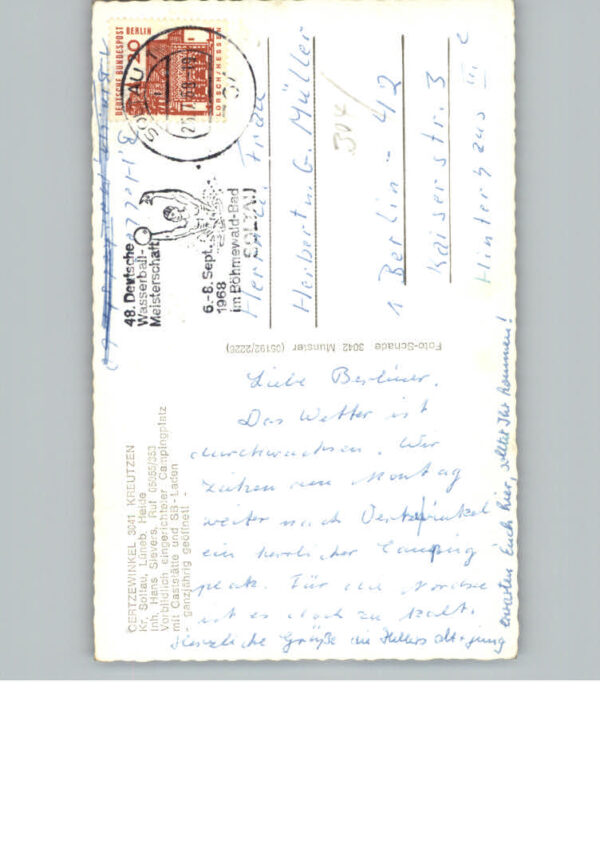 OERTZEWINKEL 3041 KREUTZEN
Kr. Soltau, Lüneb. Heide
Inh. Hans Sievers, Ruf 05055/353
Vorbildlich eingerichteter Campingplatz
mit Gaststätte und SB-Laden
- ganzjährig geöffnet! -
Liebe Berliner,
Das Wetter ist
durchwachsen. Wir
ziehen am Montag
weiter nach
ein herrlicher Camping
platz. Für die Nordsee
ist es doch zu kalt.
Herzliche Grüße die
erwarten Euch hier, solltet Ihr kommen!
Foto-Schade 3042 Munster (05192/2226)
DEUTSCHE BUNDESPOST BERLIN
20
LORSCH/HESSEN
SOLTAU 1
48. Deutsche
Wasserball-
Meisterschaft
6.-8. Sept.
1968
im Böhmewald-Bad
SOLTAU
Herrn u. Frau
Herbert u. G. Müller
304/
1 Berlin - 42
Kaiserstr. 3
Hinterhaus III